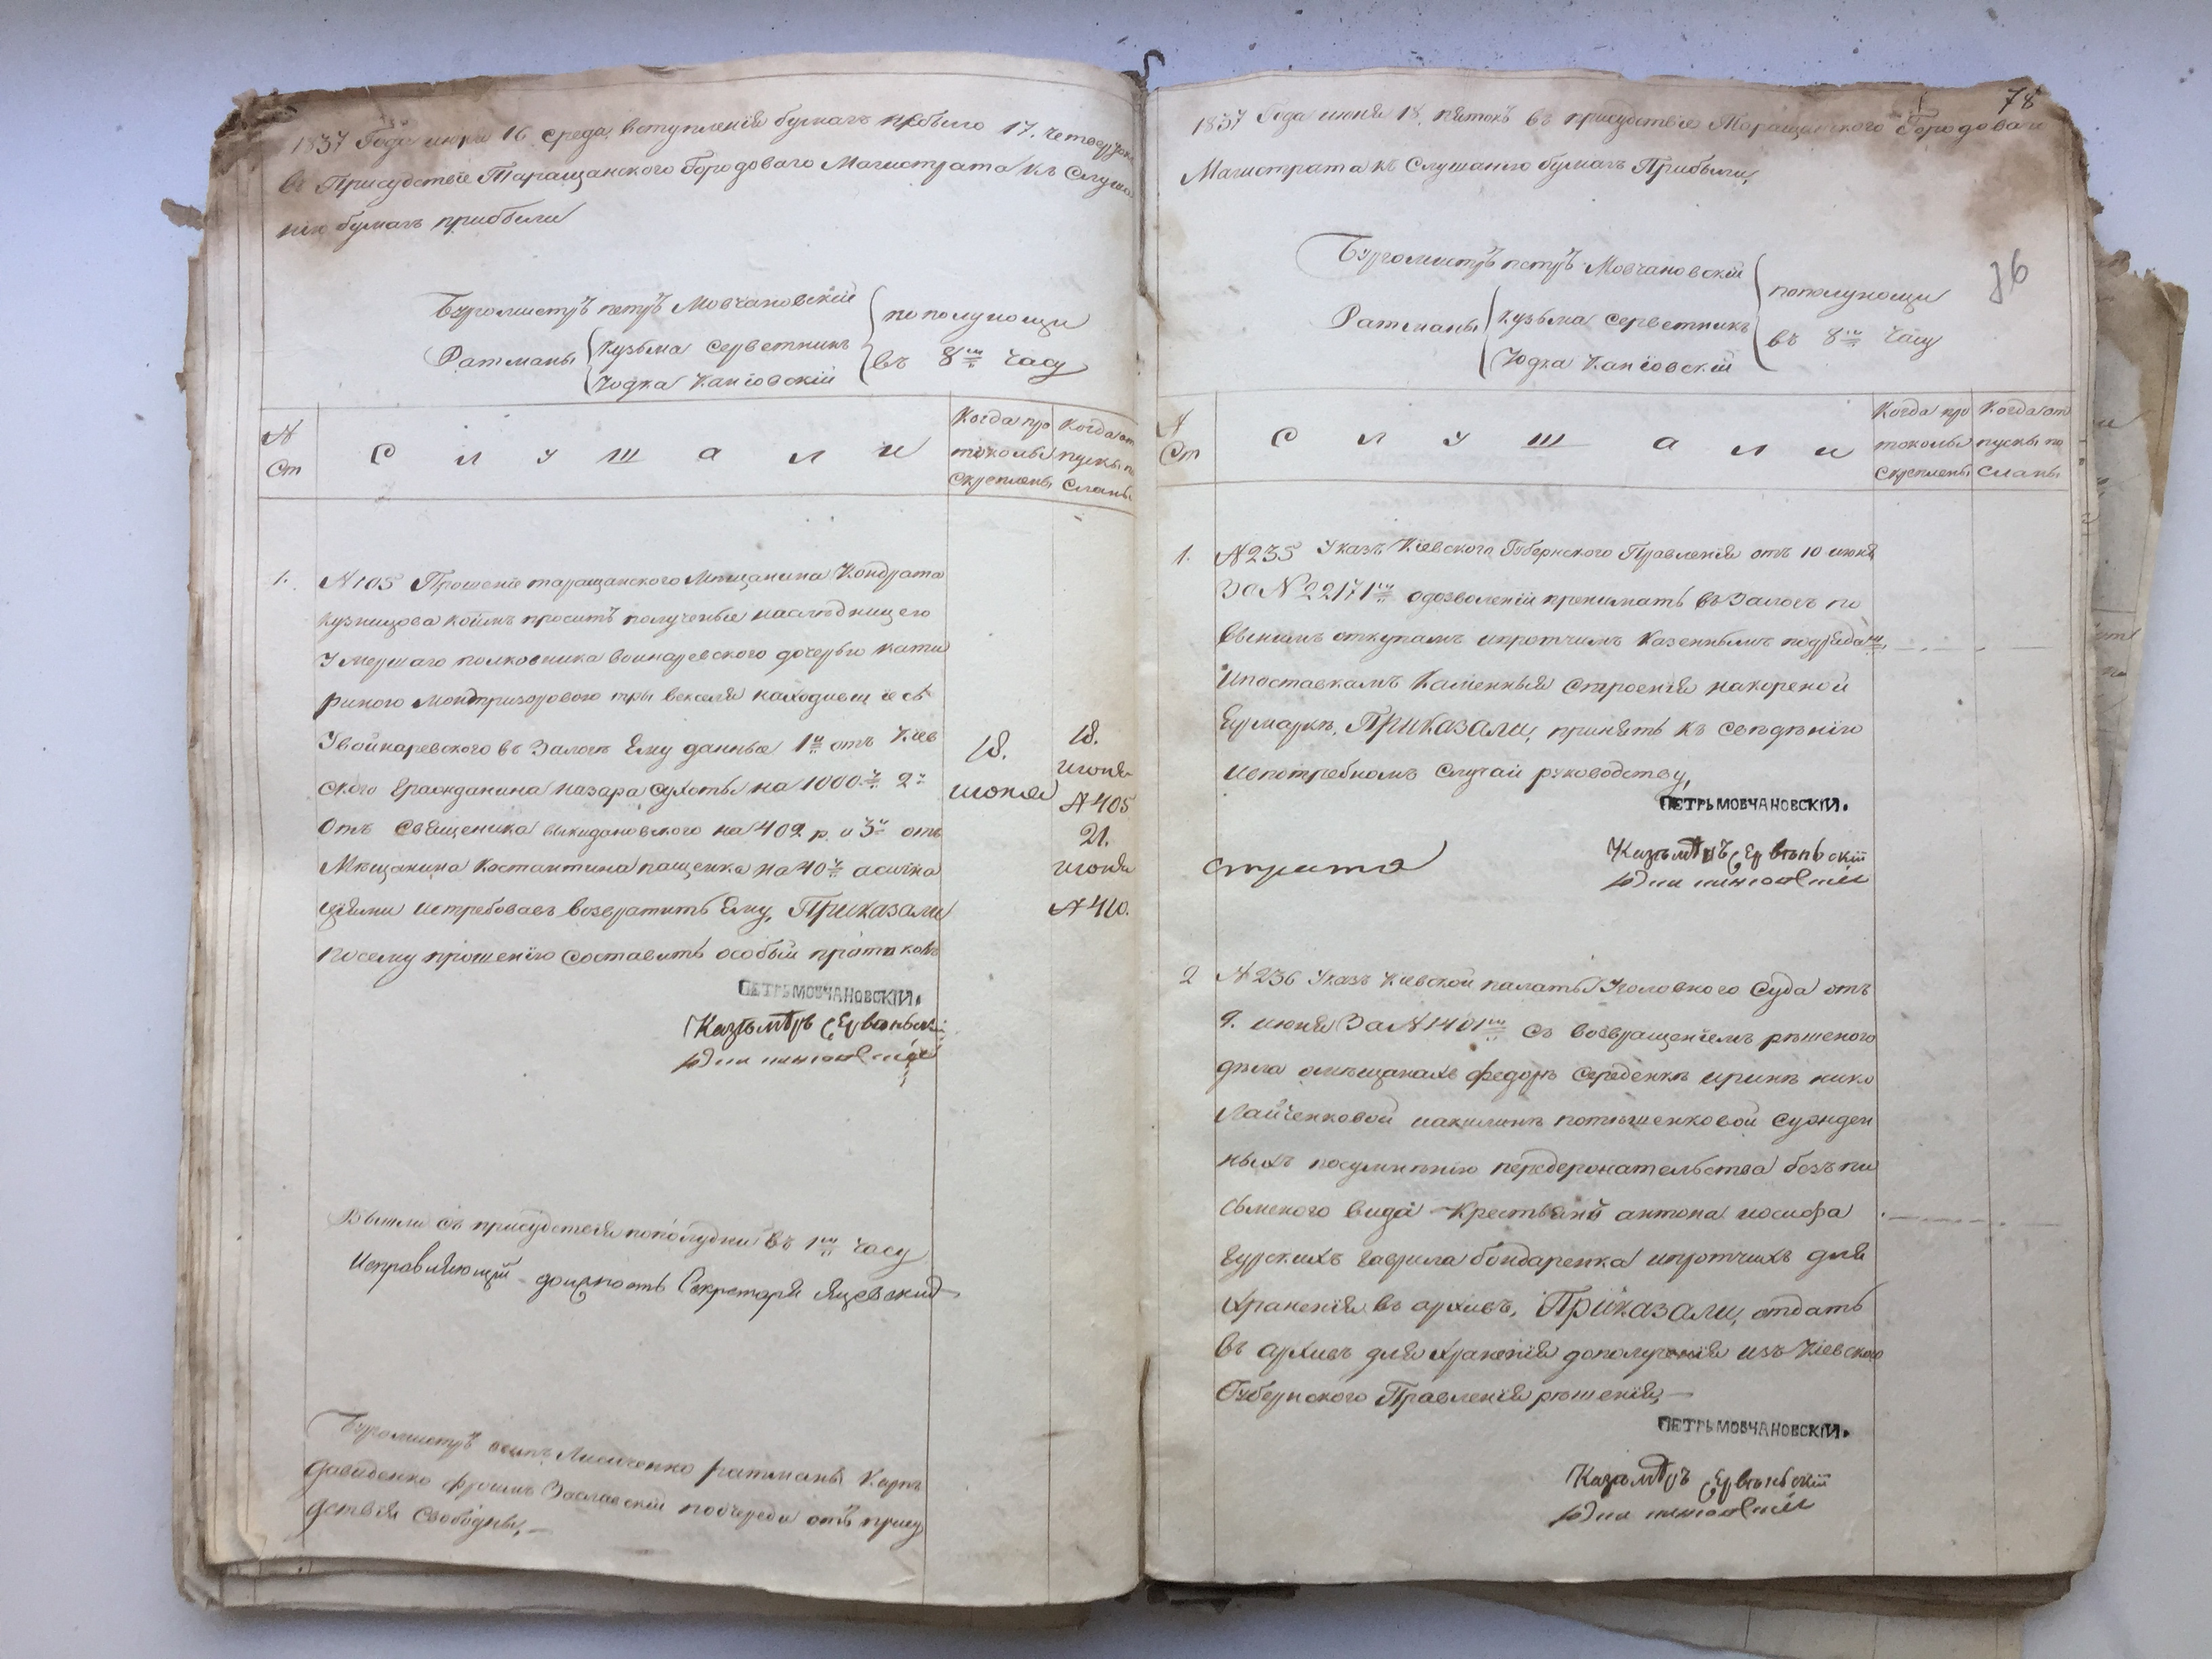 1837 Года июня 16 среда, вступленія бумагъ небыло 17. Четвертокъ
въ Присудствіе Таращанского Городоваго Магистрата къ Слуша
нію бумагъ прибыли
Бургомистръ петръ Мовчановскій
пополунощи
Ратманы
Кузьма Серветникъ
Іодка Каніовскій
въ 8мъ Часу
№ Ст
С л у ш а л и
Когда про токолы Скреплены
Когда от пуски по Сланы
1. №105 Прошеніе таращанского Мещанина Кондрата
Кузницова коимъ проситъ полученые наследницею
Умершаго полковника войнаревского дочерью кате
риною три векселя находившіесь
Увойнаревского въ Залоге Ему данные 1й отъ Кіев
ского Гражданина назара Сухоты на 1000 2й
Отъ Священика на 402 р. и 3й отъ
Мещанина Костантина пащенка на 40 асигна
ціями истребовавъ возвратить Ему, Приказали
посему прошенію Составить особый протоколъ
18. июня
18. июня №405
21. июня №410.
ПЕТРЪ МОВЧАНОВСКІЙ.
Вышли съ присудствія пополудни въ 1мъ Часу
Исправляющій должность Секретаря Яцевский
Бургомистръ осипъ Лисиченко ратманы Карпъ
давиденко фроимъ Заславскій почереди отъ присуд
ствія Свободны,
78
1837 Года июня 18, пятокъ въ присудствіе Таращанского Городоваго
Магистрата къ Слушанію бумагъ Прибыли,
76
Бургомистръ петръ Мовчановскій
пополунощи
Ратманы
Кузьма Серветникъ
Іодка Каніовскій
въ 8мъ Часу
№ Ст
С л у ш а л и
Когда про токолы Скреплены
Когда от пуски по Сланы
1. №235 Указъ Кіевского Губернского Правленія отъ 10 июня
За №22171мъ одозволеніи принимать въ Залогъ по
Виннымъ откупамъ ипротчимъ Казеннымъ подрядамъ
Ипоставкамъ Каменныя Строенія накореной
Ярмарке, Приказали, принять къ Сведенію
ивпотребномъ Случаи руководству,
ПЕТРЪ МОВЧАНОВСКІЙ.
2 №236 Указъ Кіевской палаты Уголовного Суда отъ
9. июня За №1401мъ Съ возвращеніемъ решеного
дела омещанахъ федоре Середенке ирине нико
Лайченковой иакилине потишенковой Сужден
ныхъ посумненію передержательства безъ пи
сьменого вида Крестьянъ антона иосифа
гурскихъ гаврила бондаренка ипротчихъ для
Храненія въ архивъ, Приказали, отдать
въ архивъ для храненія дополученія изъ Кіевского
Губернского Правленія решенія,
ПЕТРЪ МОВЧАНОВСКІЙ.